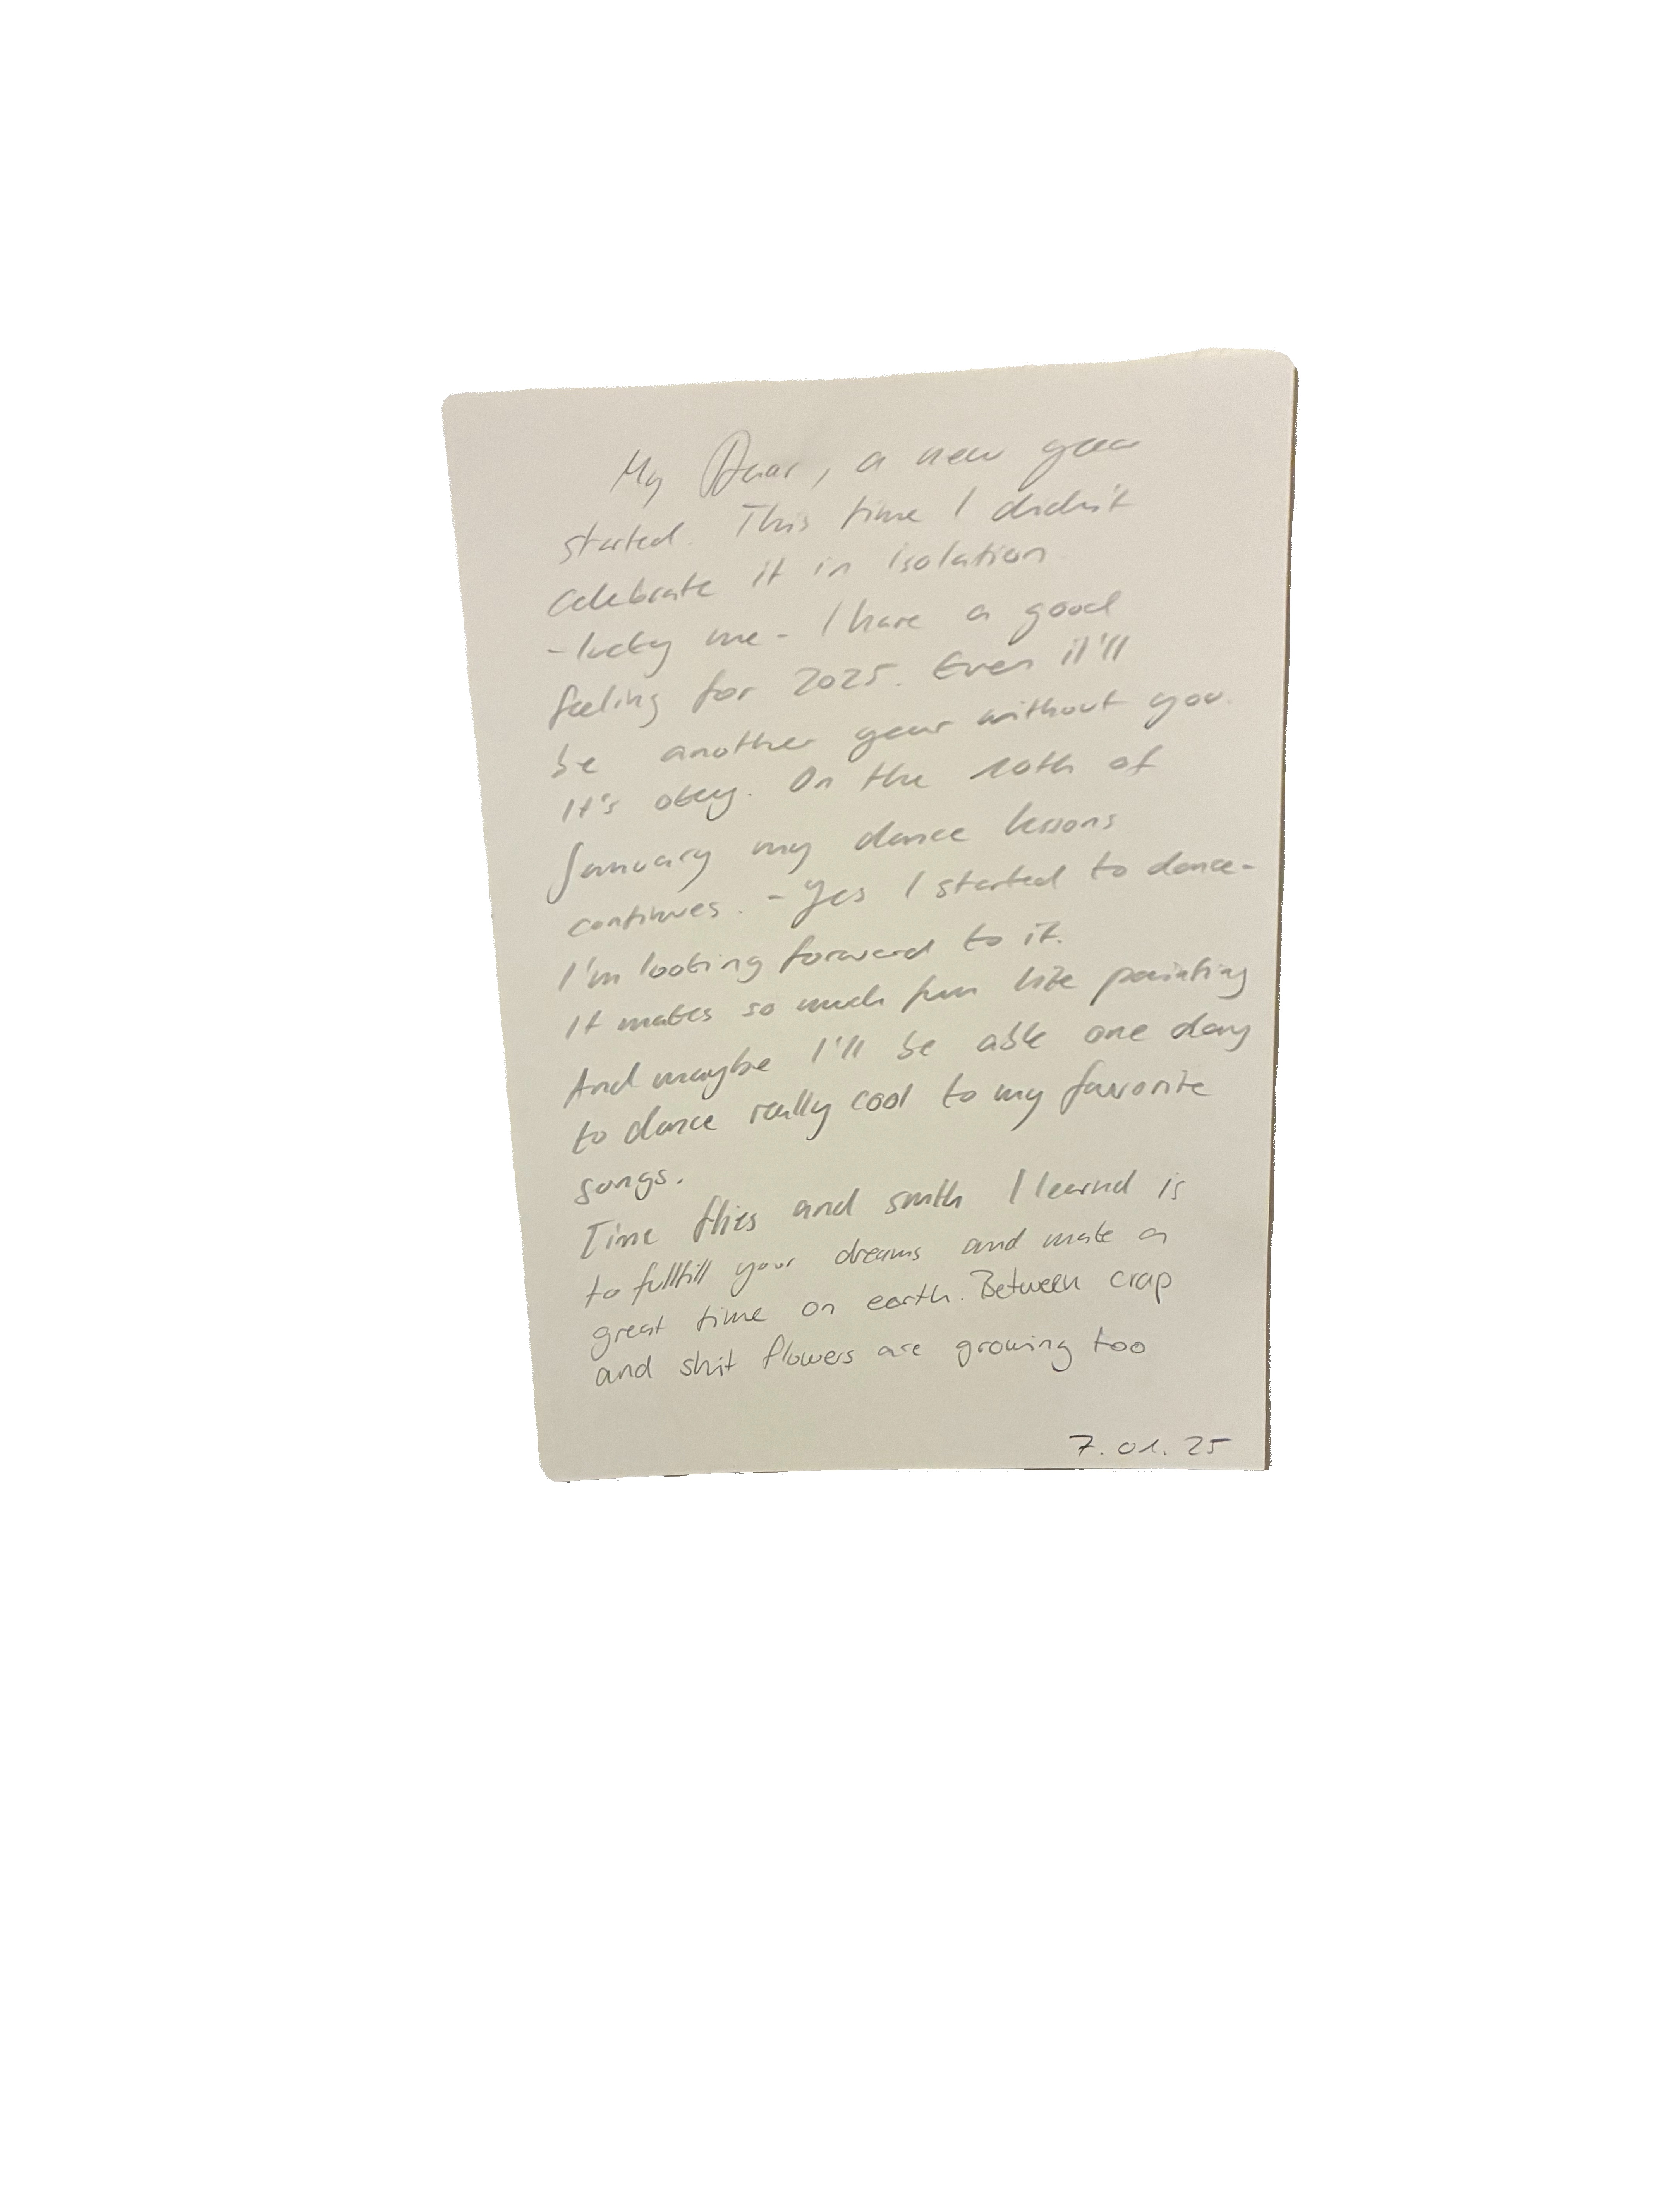 My Dear, a new year
started. This time I didn't
celebrate it in isolation
- lucky me - I have a good
feeling for 2025. Even it'll
be another year without you.
It's okay. On the 10th of
January my dance lessons
continues. - Yes I started to dance -
I'm looking forward to it.
It makes so much fun like painting
And maybe I'll be able one day
to dance really cool to my favorite
songs.
Time flies and smth I learnd is
to fullfill your dreams and make a
great time on earth. Between crap
and shit flowers are growing too
7.01.25